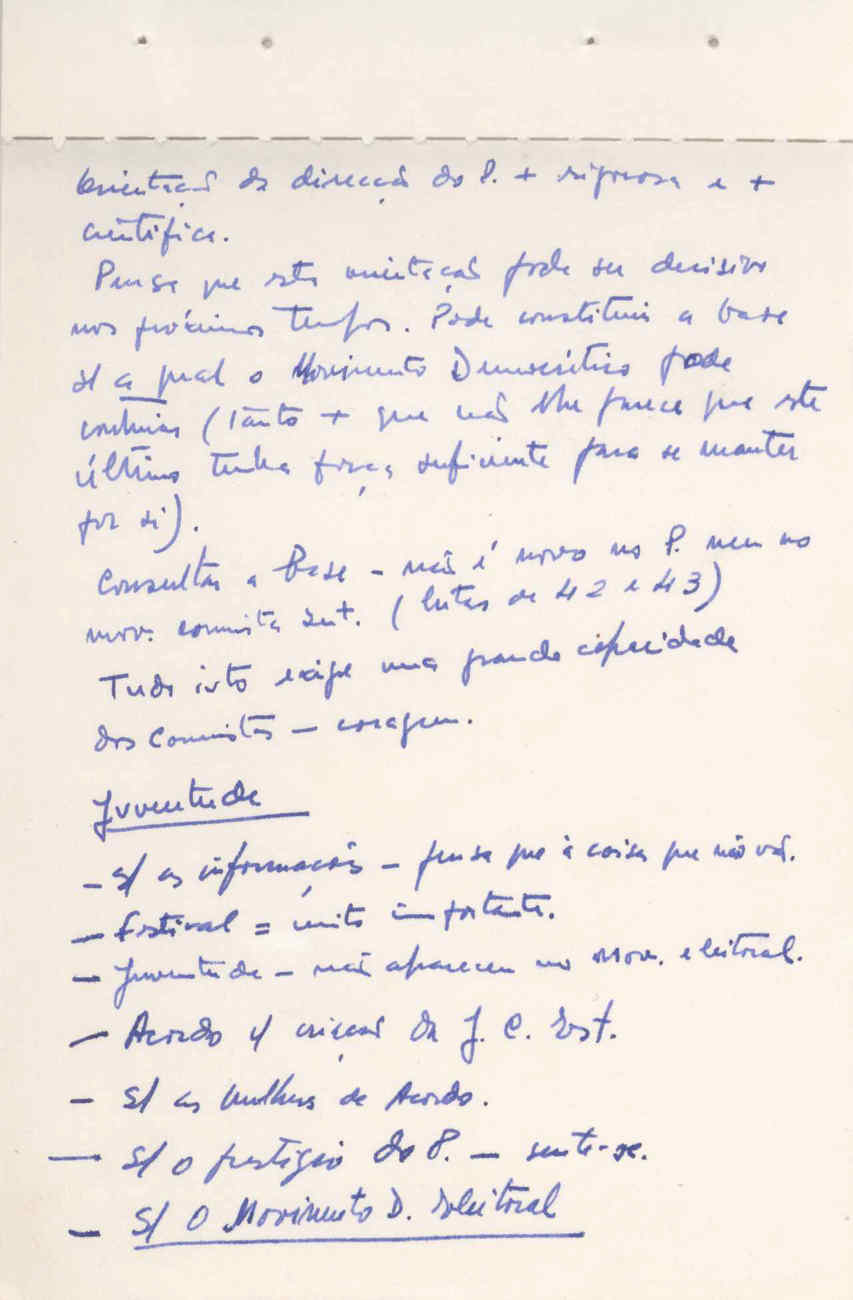 Orientação da direcção do P. + rigorosa e +
científica.
Pensa que esta orientação pode ser decisiva
nos próximos tempos. Pode constituir a base
s/ a qual o Movimento Democrático pode
continuar (Tanto + que não lhe parece que este
último tenha força suficiente para se manter
por si).
Consultar a Base - não é novo no P. nem no
mov. comunista int. (lutas de 42 e 43)
Tudo isto exige uma grande capacidade
dos Comunistas - coragem.
Juventude
- s/ as informações - pensa que à coisas que não vão.
- Festival = muito importante.
- Juventude - não apareceu no Mov. eleitoral.
- Acordo c/ criação da J. C. Est.
- S/ as mulheres de Acordo.
- S/ o prestígio do P. - sente-se.
- S/ O Movimento D. Eleitoral